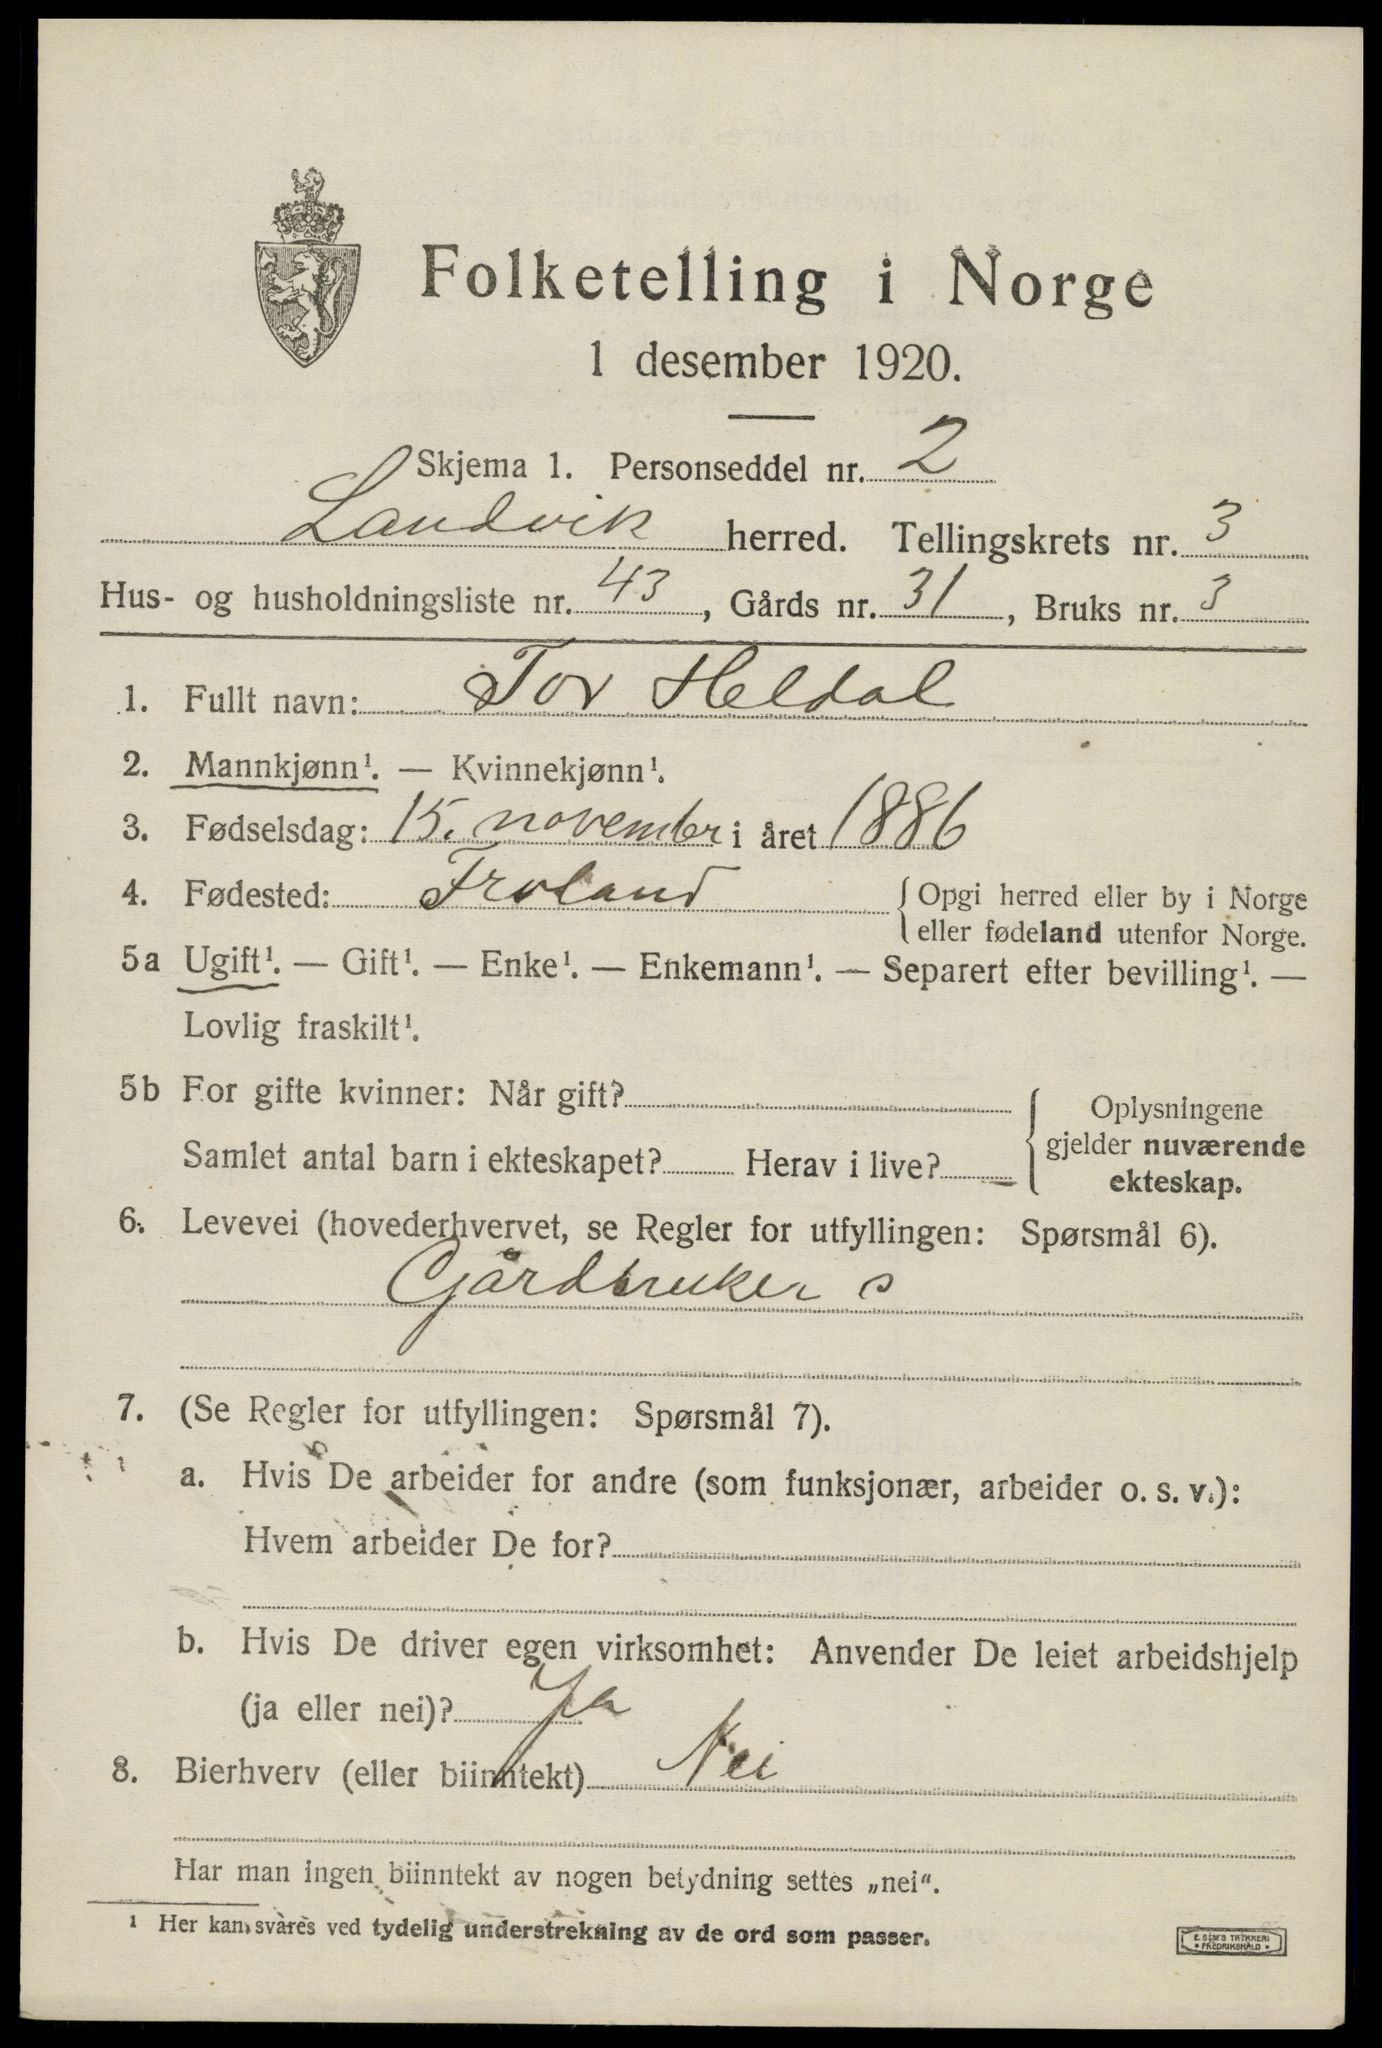 Folketelling i Norge
1 desember 1920.
Skjema 1. Personseddel nr. 2
Landvik herred. Tellingskrets nr. 3
Hus- og husholdningsliste nr. 43, Gårds nr. 31, Bruks nr. 3
1. Fullt navn: Tov Heldal
2. Mannkjønn¹. — Kvinnekjønn¹.
3. Fødselsdag: 15. november i året 1886
4. Fødested: Froland { Opgi herred eller by i Norge
eller fødeland utenfor Norge.
5a Ugift¹. — Gift¹. — Enke¹. — Enkemann¹. — Separert efter bevilling¹. —
Lovlig fraskilt¹.
5b For gifte kvinner: Når gift?
Samlet antal barn i ekteskapet? Herav i live?
Oplysningene
gjelder nuværende
ekteskap.
6. Levevei (hovederhvervet, se Regler for utfyllingen: Spørsmål 6).
Gårdbruker s
7. (Se Regler for utfyllingen: Spørsmål 7).
a. Hvis De arbeider for andre (som funksjonær, arbeider o. s. v.):
Hvem arbeider De for?
b. Hvis De driver egen virksomhet: Anvender De leiet arbeidshjelp
(ja eller nei)? Ja
8. Bierhverv (eller biinntekt) Nei
Har man ingen biinntekt av nogen betydning settes „nei".
¹ Her kan svares ved tydelig understrekning av de ord som passer.
E. SEM'S TRYKKERI
• FREDRIKSHALD •